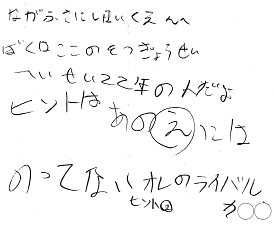 ながふさにしほいくえんへ
ぼくはここのそつぎょうせい
へいせい22年の人だよ
ヒントはあのえには
のってないオレのライバル
ヒント② カ〇〇